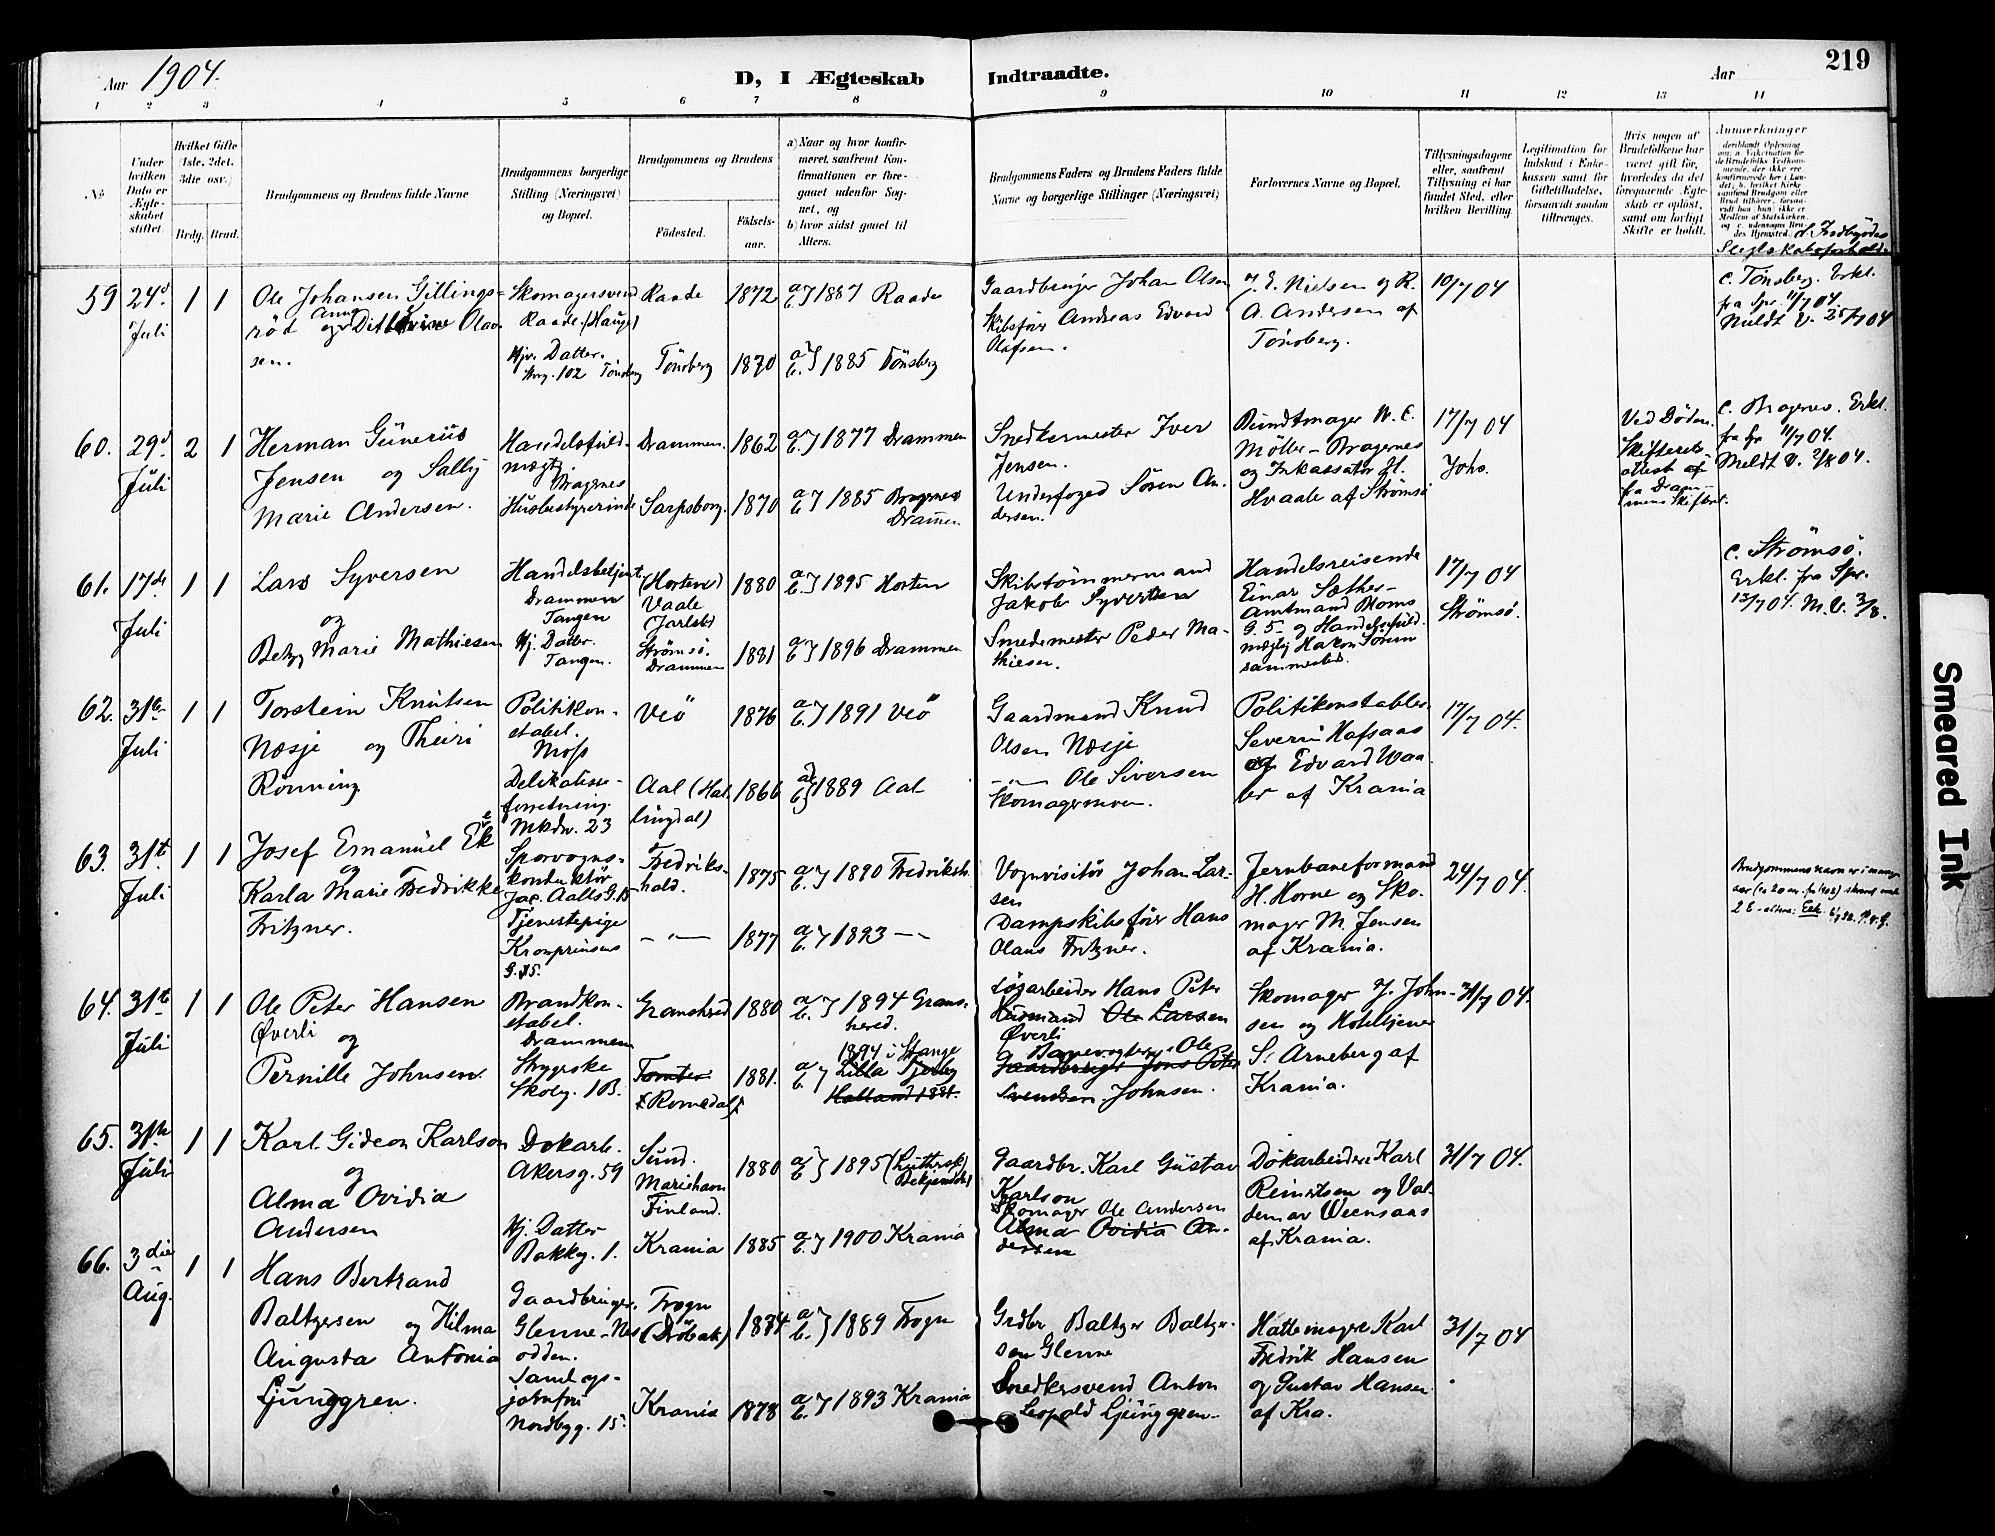 Aar 1904.
D, I Ægteskab Indtraadte.
Aar
219
1 2 3 4 5 6 7 8 9 10 11 12 13 14
No
Under hvilken Dato er Ægteskabet stiftet.
Hvilket Gifte (1ste, 2det, 3die osv.)
Brdg. Brud.
Brudgommens og Brudens fulde Navne
Brudgommens borgerlige Stilling (Næringsvei) og Bopæl.
Brudgommens og Brudens
Fødested.
Fødsels-aar.
a) Naar og hvor konfirmeret, saafremt Konfirmationen er foregaaet udenfor Sognet, og
b) hvor sidst gaaet til Alters.
Brudgommens Faders og Brudens Faders fulde Navne og borgerlige Stillinger (Næringsvei)
Forlovernes Navne og Bopæl.
Tillysningsdagene eller, saafremt Tillysning ei har fundet Sted, efter hvilken Bevilling.
Legitimation for Indskud i Enkekassen samt for Giftetilladelse, forsaavidt saadan tiltrænges.
Hvis nogen af Brudefolkene har været gift før, hvorledes da det foregaaende Ægteskab er opløst, samt om lovligt Skifte er holdt.
Anmerkninger
59 24d Juli 1 1
Ole Johansen Gillings-
rød og Anna Olav
sen.
Skomagersvend
Raade (Hauge)
Hjv. Datter.
102 Tönsberg
Raade 1872 a b} 1887 Raade
Tönsberg 1870 a b} 1885 Tönsberg
Gaardbruger Johan Olsen
Skibsfører Andreas Edvard
Olafsen.
J. E. Nielsen og R.
A. Andersen af
Tönsberg.
10/7 04
c. Tønsberg. Erkl.
fra Spr. 11/7 04.
Meldt V. 25/7 04
60. 29d Juli 2 1
Herman Gunerius
Jensen og Sally
Marie Andersen.
Handelsfuld-
mægtg.
Bragenes
Husbestyrerinde
Drammen. 1862 a b} 1877 Drammen
Sarpsborg. 1870 a b} 1885 Bragenes
Drammen
Snedkermester Iver
Jensen.
Underfoged Søren An-
dersen.
Bundtmager W. C.
Møller - Bragenes
og Inkassator H.
Hvaale af Strømsø
17/7 04
Johs.
Ved Døden.
Skifterets-
attest af
fra Dram-
mens Skifteret.
c. Bragenes. Erkl.
fra 11/7 04.
Meldt V. 2/8 04.
61. 17de Juli 1 1
Lars Syversen
og
Betzy Marie Mathiesen
Handelsbetjent.
Drammen
Tangen
Hj. Datter.
Tangen.
(Horten)
Vaale
(Jarlsb)
1880 a b} 1895 Horten
Strømsö.
Drammen
1881 a b} 1896 Drammen
Skibstömmermand
Jakob Syvertsen
Smedemester Peder Ma-
thiesen.
Handelsreisende
Einar Sæther -
Amtmand Bloms
G. 5 - og Handelsfuld.
mægtig Hakon Sörum
sammested.
17/7 04
Strømsö.
c. Strømsö.
Erkl. fra Spr.
13/7 04. M. V. 3/8.
62. 31te Juli 1 1
Torstein Knutsen
Næsje og Theiri
Rönning
Politikon-
stabel.
Moss
Delikatesse-
forretning.
Mkdv. 23
Veö 1876 a b} 1891 Veö
Aal (Hal
lingdal) 1866 a b} 1889 Aal
Gaardmand Knud
Olsen Næsje
— " — Ole Siversen
Skomagermoen.
Politikonstabler
Severin Hafsaas
og Edvard Waa
ler af Krania
17/7 04.
63. 31te Juli 1 1
Josef Emanuel Ek
og
Karla Marie Fredrikke
Fritzner.
Sporvogns-
konduktör
Jac. Aalls G. 15
Tjenestepige
Kronprinsens
G. 15.
Fredriks-
hald. 1875 a b} 1890 Fredriksh.
— " — 1877 a b} 1893 — " —
Vognvisitör Johan Lar-
sen
Dampskibsförer Hans
Olaus Fritzner.
Jernbaneformand
H. Horne og Sko-
mager M. Jensen
af Krania.
24/7 04.
Brudgommens navn er i mange
aar
2 E - altsaa: Eek.
64. 31te Juli 1 1
Ole Peter Hansen
Øverli og
Pernille Johnsen.
Brandkon-
stabel.
Drammen
Strygerske
Skolg. 10B.
Gransherad 1880 a b} 1894 Grans-
hered.
Tomter
Romedal 1881. a b} 1894 i Stange
Lilla Tjerby
Halland 1881.
Løsarbeider Hans Peter
Husmand Ole Larsen
Øverli
Banevogter Ole
Gaardbruger Jons Peter
Svendsen. Johnsen.
Skomager J. John-
sen og Hotelltjener
S. Arneberg af
Krania.
31/7 04.
65. 31te Juli 1 1
Karl Gideon Karlson
og
Alma Ovidia
Andersen
Dokarb.
Akersg. 59
Hj. Datter
Bakkeg. 1.
Sund.
Mariehavn
Finland. 1880 a b} 1895 (Luthersk
Bekjendelse)
Krania 1885 a b} 1900 Krania
Gaardbr. Karl Gustav
Karlson
Skomager Ole Andersen
Alma Ovidia An-
dersen
Dokarbeidere Karl
Reinertsen og Val-
demar Weensaas
af Krania.
31/7 04.
66. 3die Aug. 1 1
Hans Bertrand
Baltzersen og Hilma
Augusta Antonia
Ljunggren.
Gaardbruger.
Glenne - Nes
odden.
jomfru
Nordbyg. 15.
Frogn
(Dröbak) 1874 a b} 1889 Frogn
Krania 1878 a b} 1893 Krania
Grdbr Baltzer Baltzer-
sen Glenne
Snedkersvend Anton
Leopold Ljunggren.
Hattemager Karl
Fredrik Hansen
og Gustav Hansen
af Kra.
31/7 04
Smeared Ink